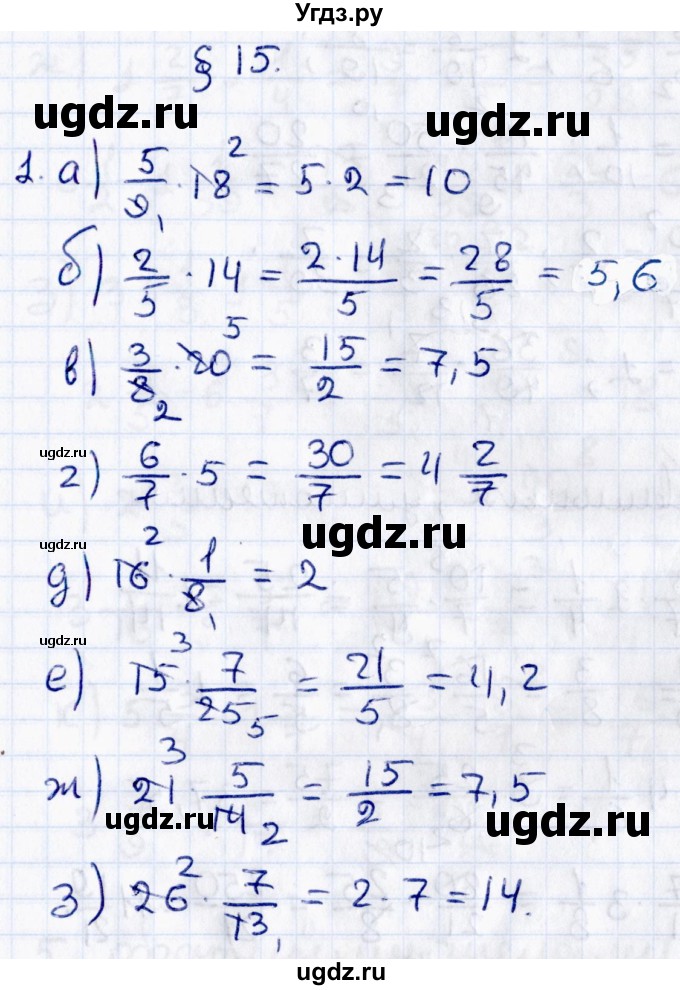 Угдз.ру
§ 15.
ugdz.ru ugdz.ru
1. а) 5/9₁ · 18² = 5 · 2 = 10
б) 2/5 · 14 = 2 · 14/5 = 28/5 = 5,6
в) 3/8₂ · 20⁵ = 15/2 = 7,5
ugdz.ru
г) 6/7 · 5 = 30/7 = 4 2/7
ugdz.ru
ugdz.ru
д) 16² · 1/8₁ = 2
ugdz.ru
е) 15³ · 7/25₅ = 21/5 = 4,2
ж) 21³ · 5/14₂ = 15/2 = 7,5
ugdz.ru ugdz.ru
з) 26² · 7/13₁ = 2 · 7 = 14.
ugdz.ru